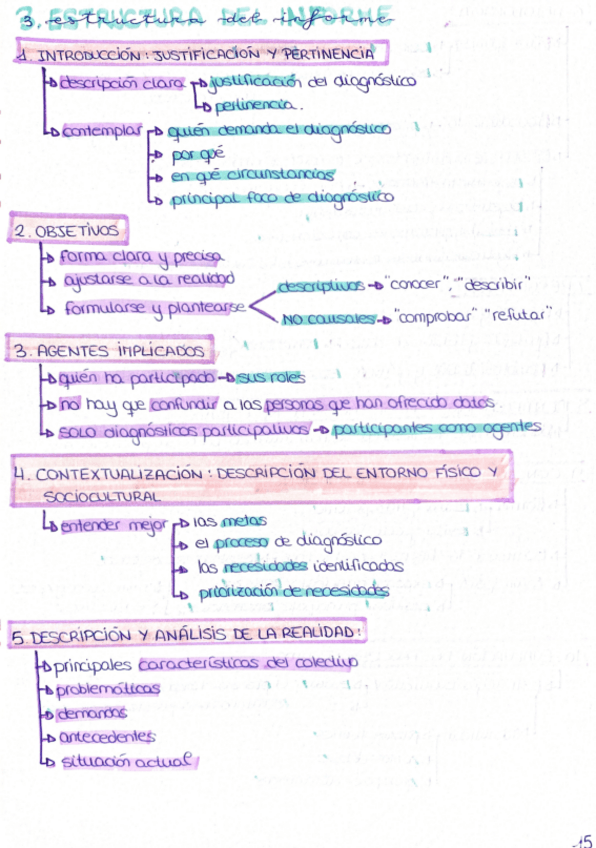 3. ESTRUCTURA DEL INFORME
1. INTRODUCCIÓN: JUSTIFICACIÓN Y PERTINENCIA
descripción clara → justificación del diagnóstico
pertinencia.
contemplar → quién demanda el diagnóstico
por qué
en qué circunstancias
principal foco de diagnóstico
2. OBJETIVOS
forma clara y precisa
ajustarse a la realidad
formularse y plantearse
descriptivos → "conocer", "describir"
NO causales → "comprobar" "refutar"
3. AGENTES IMPLICADOS
quién ha participado → sus roles
no hay que confundir a las personas que han ofrecido datos.
SOLO diagnósticos participativos → participantes como agentes
4. CONTEXTUALIZACIÓN: DESCRIPCIÓN DEL ENTORNO FÍSICO Y
SOCIOCULTURAL
entender mejor → las metas
el proceso de diagnóstico
las necesidades identificadas
priorización de necesidades
5. DESCRIPCIÓN Y ANÁLISIS DE LA REALIDAD:
principales características del colectivo
problemáticas
demandas
antecedentes
situación actual
15